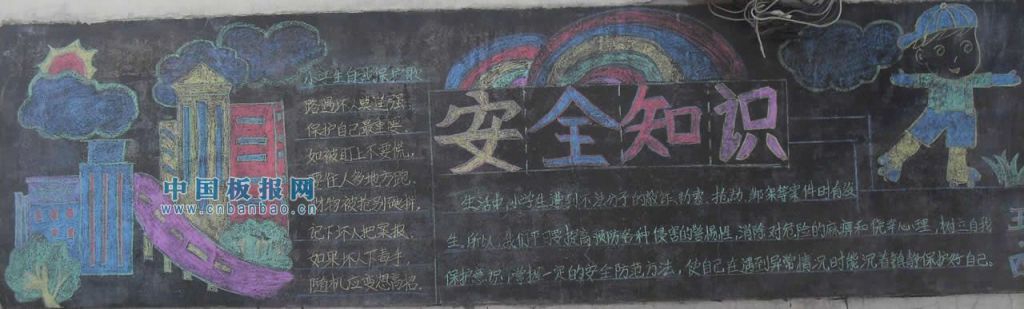 小学生自我保护歌
路遇坏人莫逞强,
保护自己最重要。
如被盯上不要慌,
要往人多地方跑。
财物被抢别硬拼,
记下坏人把案报。
如果坏人下毒手,
随机应变想高招。
安全知识
生活中,小学生遭到不法分子的敲诈、勒索、抢劫、绑架等案件时有发
生,所以,我们平时要提高预防各种侵害的警惕性,消除对危险的麻痹和侥幸心理,树立自我
保护意识,掌握一定的安全防范方法,使自己在遇到异常情况时能沉着镇静保护好自己。
中国板报网
www.cnbanbao.cn